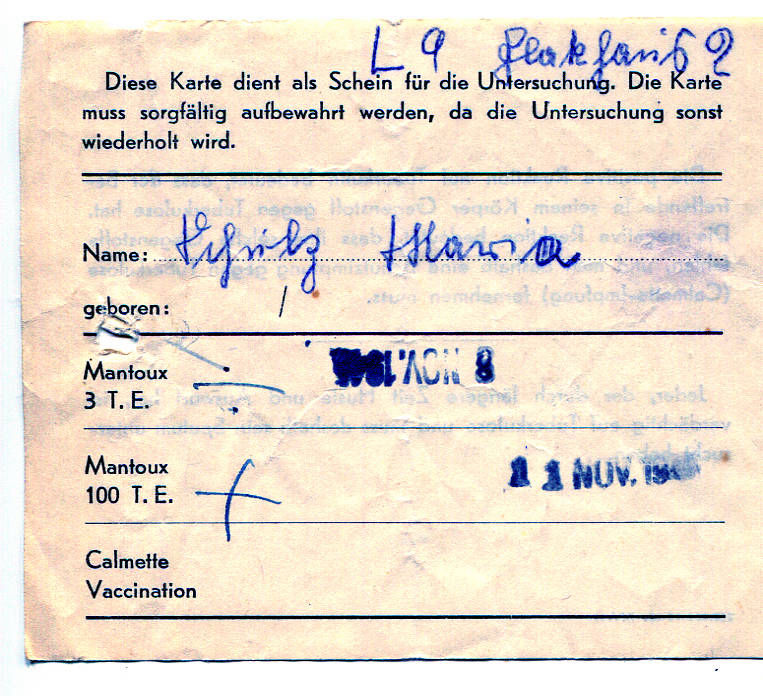 L 9
Diese Karte dient als Schein für die Untersuchung. Die Karte
muss sorgfältig aufbewahrt werden, da die Untersuchung sonst
wiederholt wird.
Name: Schulz Maria
geboren:
Mantoux
3 T. E.
8 NOV. 19
Mantoux
100 T. E. +
1 1 NOV. 19
Calmette
Vaccination